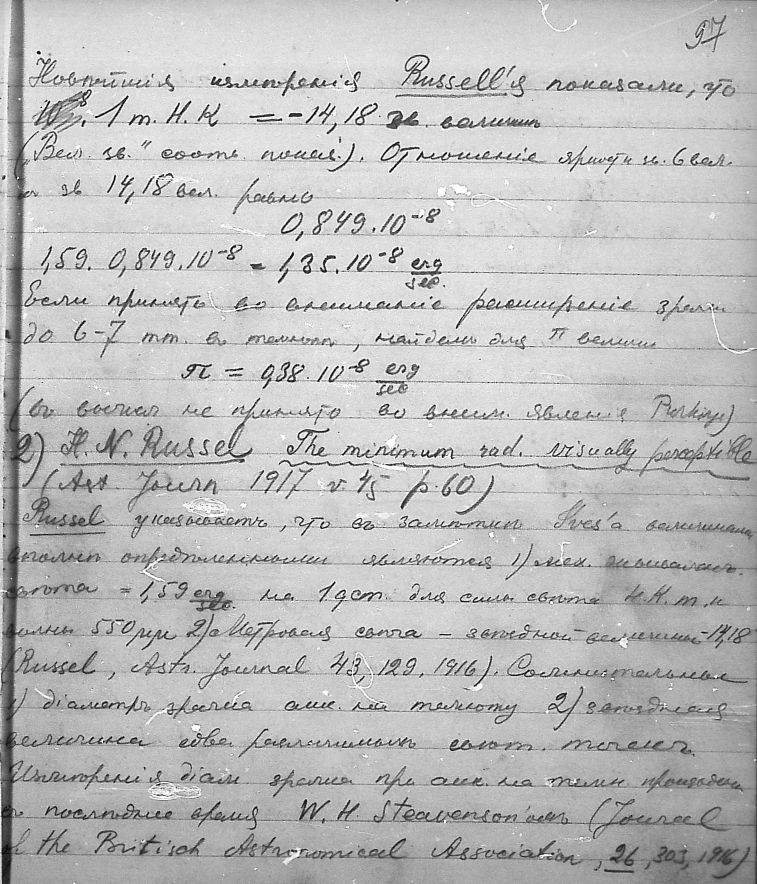 97
Новѣйшія измѣренія Russell'я показали, что
1 m. H. K = -14,18 зв. величин
("Вел. зв." соотв. показ.). Отношеніе яркости зв. 6 вел.
и зв 14,18 вел. равно
0,849.10⁻⁸
1,59. 0,849.10⁻⁸ = 1,35.10⁻⁸ erg/sec.
Если принять во вниманіе расширеніе зрачк
до 6-7 mm. въ темнотѣ, найдемъ для π величин
π = 0,38.10⁻⁸ erg/sec
(въ не принято во вним. явленія Purkinje)
2) H. N. Russel The minimum rad. visually perceptible
(Ast. Journ 1917 v. 45 p. 60)
Russel указываетъ, что въ замѣткѣ Ives'a величинами
вполнѣ опредѣленными являются 1) мех. эквивалент.
свѣта = 1,59 erg/sec. на 1 для силы свѣта H.K.
волны 550 μμ 2) Метровая свѣча - звѣздной величинѣ -14,18
(Russel, Astr. Journal 43, 129, 1916). Сомнительны
1) діаметръ зрачка акк. на темноту 2) звѣздная
величина едва различимыхъ свѣт. точекъ.
Измѣренія діам зрачка при акк. на темн. произведены
въ послѣднее время W. H. Steavenson'омъ (Journal
of the Britisch Astronomical Association, 26, 303, 1916)